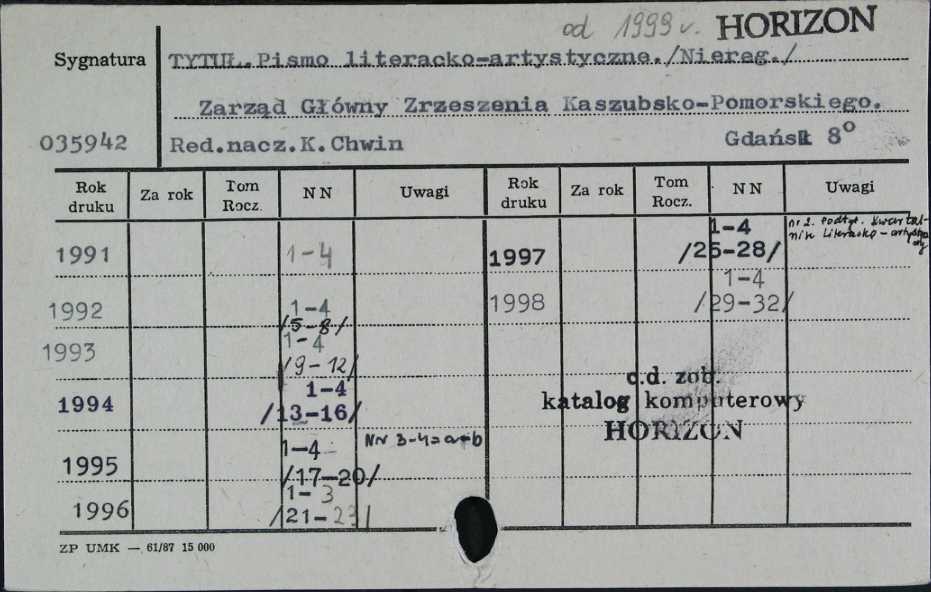 od 1999 r. HORIZON
Sygnatura TYTUŁ.Pismo literacko-artystyczne./Niereg./
Zarząd Główny Zrzeszenia Kaszubsko-Pomorskiego.
035942 Red.nacz.K.Chwin Gdańsk 8°
Rok druku Za rok Tom Rocz. NN Uwagi Rok druku Za rok Tom Rocz. NN Uwagi
1991 1-4 1997 1-4 /25-28/ nr 2. podtyt. kwartal-
nik literacko-artysty
czny
1992 1-4 /5-8/ 1998 1-4 /29-32/
1993 1-4 /9-12/
1994 1-4 /13-16/
c.d. zob.
katalog komputerowy
HORIZON
1995 1-4 /17-20/ Nr 3-4=a-b
1996 1-3 /21-23/
ZP UMK — 61/87 15 000